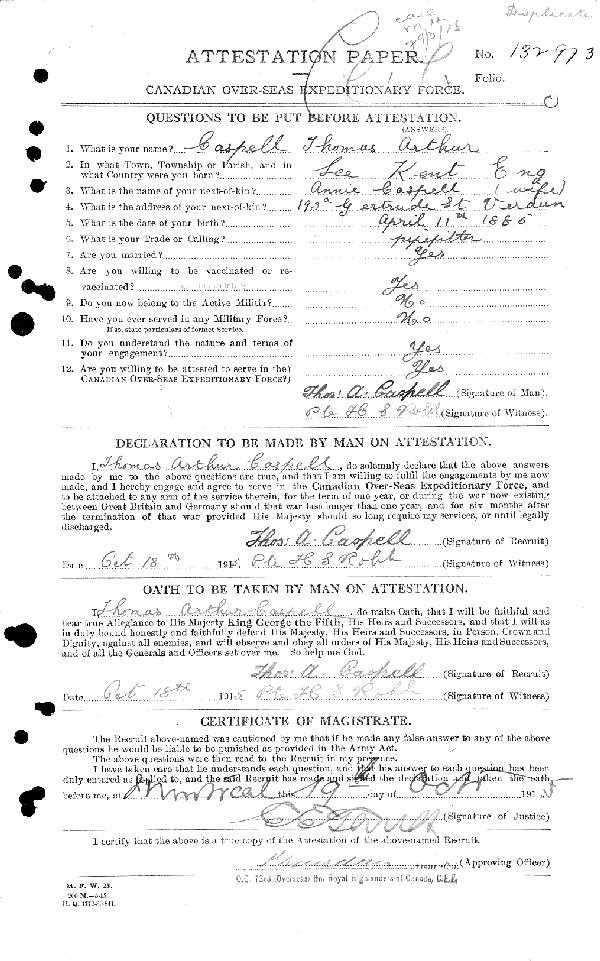 Duplicate
ATTESTATION PAPER.
No. 132973
Folio.
CANADIAN OVER-SEAS EXPEDITIONARY FORCE.
QUESTIONS TO BE PUT BEFORE ATTESTATION.
(ANSWERS)
1. What is your name? Caspell Thomas Arthur
2. In what Town, Township or Parish, and in
what Country were you born? Lee Kent Eng
3. What is the name of your next-of-kin? Annie Caspell (wife)
4. What is the address of your next-of-kin? 193a Gertrude St Verdun
5. What is the date of your birth? April 11th 1885
6. What is your Trade or Calling? pipefitter
7. Are you married? Yes
8. Are you willing to be vaccinated or re-
vaccinated? Yes
9. Do you now belong to the Active Militia? No
10. Have you ever served in any Military Force? No
If so, state particulars of former Service.
11. Do you understand the nature and terms of
your engagement? Yes
12. Are you willing to be attested to serve in the Yes
CANADIAN OVER-SEAS EXPEDITIONARY FORCE?
Thos: A. Caspell (Signature of Man).
Pte H S Robb (Signature of Witness).
DECLARATION TO BE MADE BY MAN ON ATTESTATION.
I, Thomas Arthur Caspell, do solemnly declare that the above answers
made by me to the above questions are true, and that I am willing to fulfil the engagements by me now
made, and I hereby engage and agree to serve in the Canadian Over-Seas Expeditionary Force, and
to be attached to any arm of the service therein, for the term of one year, or during the war now existing
between Great Britain and Germany should that war last longer than one year, and for six months after
the termination of that war provided His Majesty should so long require my services, or until legally
discharged.
Thos: A. Caspell (Signature of Recruit)
Date Oct 18th 1915. Pte H S Robb (Signature of Witness)
OATH TO BE TAKEN BY MAN ON ATTESTATION.
I, Thomas Arthur Caspell, do make Oath, that I will be faithful and
bear true Allegiance to His Majesty King George the Fifth, His Heirs and Successors, and that I will as
in duty bound honestly and faithfully defend His Majesty, His Heirs and Successors, in Person, Crown and
Dignity, against all enemies, and will observe and obey all orders of His Majesty, His Heirs and Successors,
and of all the Generals and Officers set over me. So help me God.
Thos: A. Caspell (Signature of Recruit)
Date Oct 18th 1915 Pte H S Robb (Signature of Witness)
CERTIFICATE OF MAGISTRATE.
The Recruit above-named was cautioned by me that if he made any false answer to any of the above
questions he would be liable to be punished as provided in the Army Act.
The above questions were then read to the Recruit in my presence.
I have taken care that he understands each question, and that his answer to each question has been
duly entered as replied to, and the said Recruit has made and signed the declaration and taken the oath
before me, at Montreal this 19th day of Oct 1915
(Signature of Justice)
I certify that the above is a true copy of the Attestation of the above-named Recruit.
(Approving Officer)
O.C. 73rd (Overseas) Bn. Royal Highlanders of Canada, C.E.F.
M. F. W. 23.
H. Q. 1772-39-841.